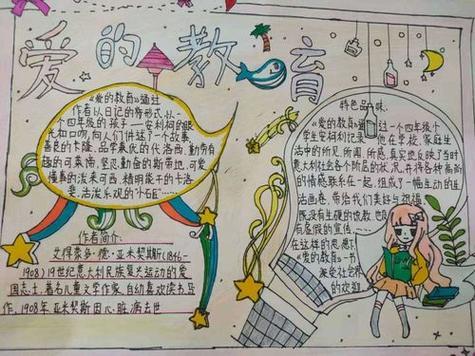 爱的教育
《爱的教育》通过
作者以日记的形式,以一
个四年级的孩子——安利柯的眼
光和口吻,向人们讲述了一个故事
善良的卡隆、品学兼优的代洛西、勤劳有
趣的可莱谛、坚忍勤奋的斯带地、可爱
懂事的泼来可西、精明能干的卡洛
斐、活泼乐观的"小石匠"……
作者简介:
艾得蒙多·德·亚米契斯(1846-
1908)19世纪意大利民族复兴运动的爱
国志士,著名儿童文学作家,自幼喜欢读书写
作,1908年亚米契斯因心脏病去世
特色品味:
《爱的教育》通过一个四年级小
学生安利柯记录,他在学校、家庭生
活中的所见、所闻、所感,真实地反映了当时
意大利社会各个阶层的状况,并将各种高尚
的情感联系在一起,组成了一幅生动的生
活画卷,带给我们美好与祝福
既没有生硬的说教,也没
有虚假的宣传,
在这样的思想下
《爱的教育》一书
深受社会界
的欢迎